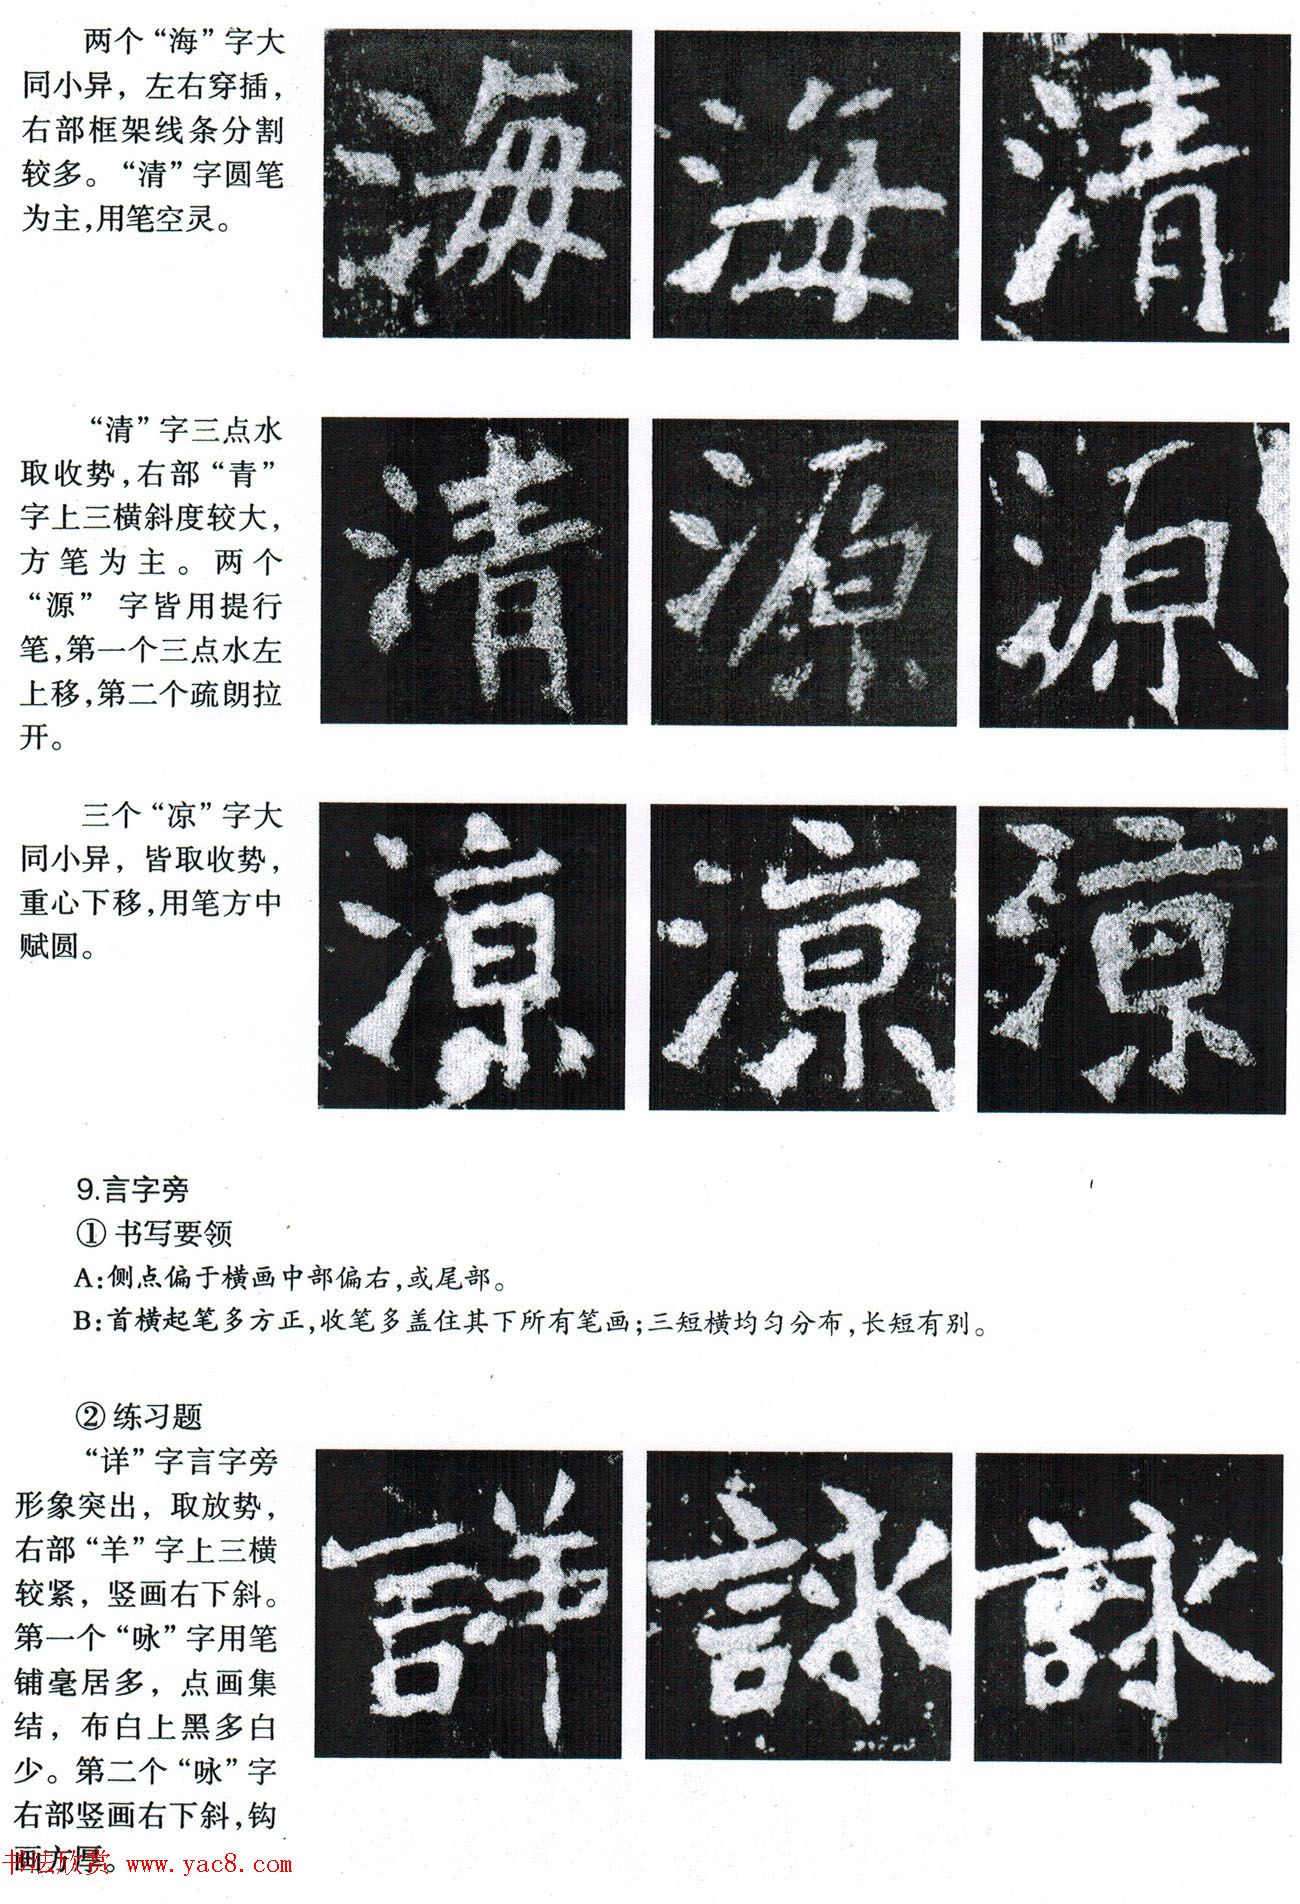 两个“海”字大
同小异，左右穿插，
右部框架线条分割
较多。“清”字圆笔
为主，用笔空灵。
海 海 清
“清”字三点水
取收势，右部“青”
字上三横斜度较大，
方笔为主。两个
“源”字皆用提行
笔，第一个三点水左
上移，第二个疏朗拉
开。
清 源 源
三个“凉”字大
同小异，皆取收势，
重心下移，用笔方中
赋圆。
涼 涼 涼
9.言字旁
① 书写要领
A：侧点偏于横画中部偏右，或尾部。
B：首横起笔多方正，收笔多盖住其下所有笔画；三短横均匀分布，长短有别。
② 练习题
“详”字言字旁
形象突出，取放势，
右部“羊”字上三横
较紧，竖画右下斜。
第一个“咏”字用笔
铺毫居多，点画集
结，布白上黑多白
少。第二个“咏”字
右部竖画右下斜，钩
画方厚。
詳 詠 詠
书法欣赏 www.yac8.com